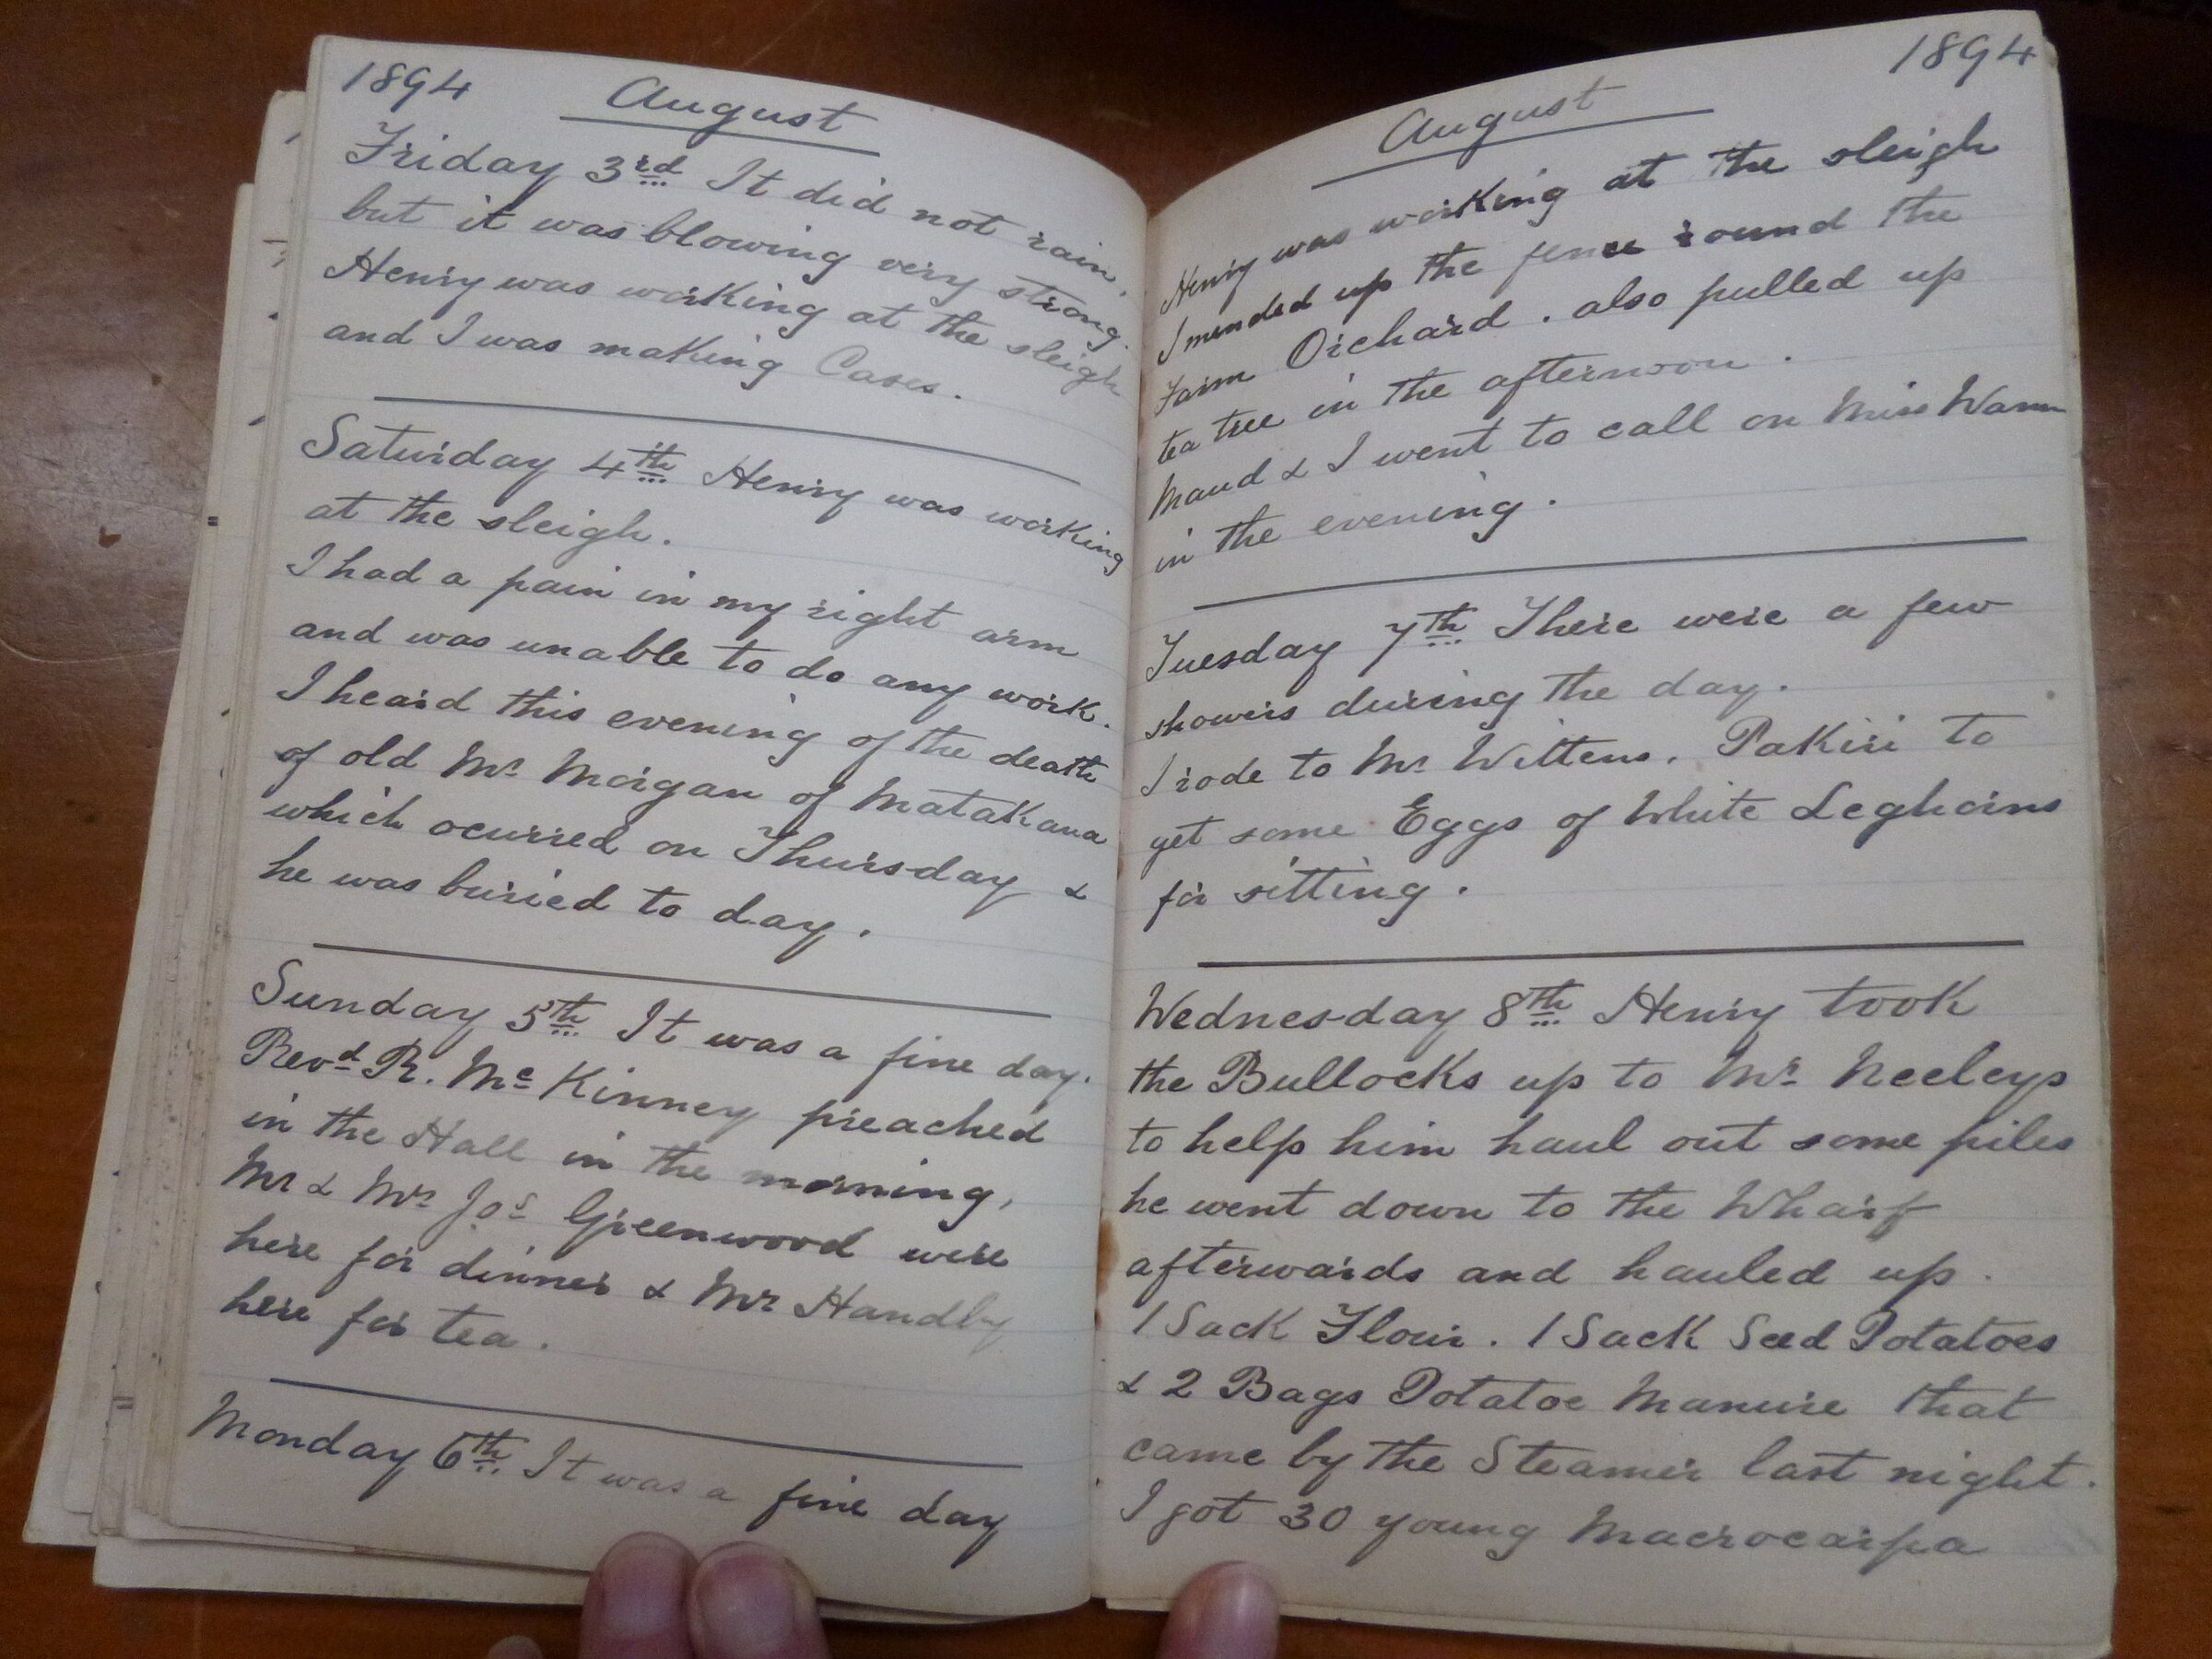 1894 August
Friday 3rd It did not rain,
but it was blowing very strong.
Henry was working at the sleigh
and I was making Cases.
Saturday 4th Henry was working
at the sleigh.
I had a pain in my right arm
and was unable to do any work.
I heard this evening of the death
of old Mr Morgan of Matakana
which ocurred on Thursday &
he was buried to day.
Sunday 5th It was a fine day.
Revd R. Mc Kinney preached
in the Hall in the morning,
Mr & Mrs Jos Greenwood were
here for dinner & Mr Handly
here for tea.
Monday 6th It was a fine day
August 1894
Henry was working at the sleigh
I mended up the fence round the
Farm Orchard. also pulled up
tea tree in the afternoon.
Maud & I went to call on Miss
in the evening.
Tuesday 7th There were a few
showers during the day.
I rode to Mr Wittens, Pakiri to
get some Eggs of White Leghorns
for sitting.
Wednesday 8th Henry took
the Bullocks up to Mr Neeleys
to help him haul out some piles
he went down to the Wharf
afterwards and hauled up.
1 Sack Flour. 1 Sack Seed Potatoes
& 2 Bags Potatoe Manure that
came by the Steamer last night.
I got 30 young Macrocarpa